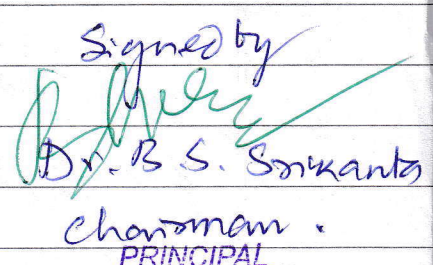 Signed by
Dr. B. S. Srikanta
Chairman.
PRINCIPAL